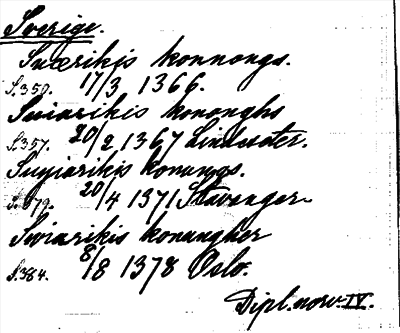 Sverige.
Suærikis konnongs.
S.350. 17/3 1366.
Suiarikis kononghs
S.357. 20/2 1367
Suyiarikis konungs.
20/4 1371 Stavanger
Swiarikis konungher
S.384. 8/8 1378 Oslo.
Dipl. norv. IV.